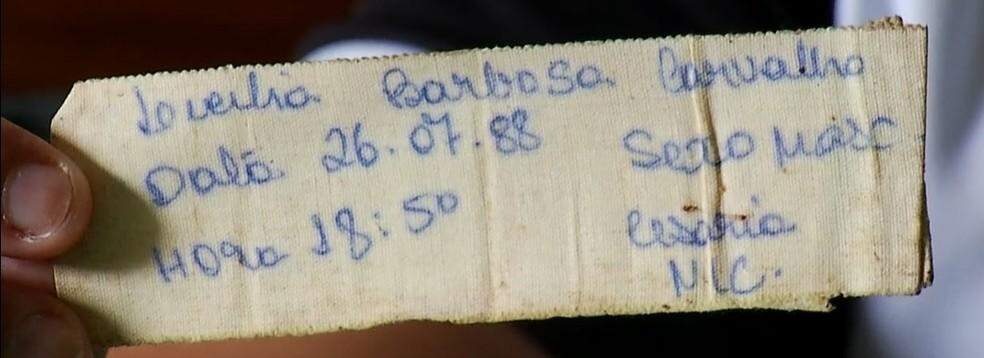 Lovelia Barbosa Carvalho
Data 26.07.88 Sexo Masc
Hora 18:50 Cesaria
N.C.